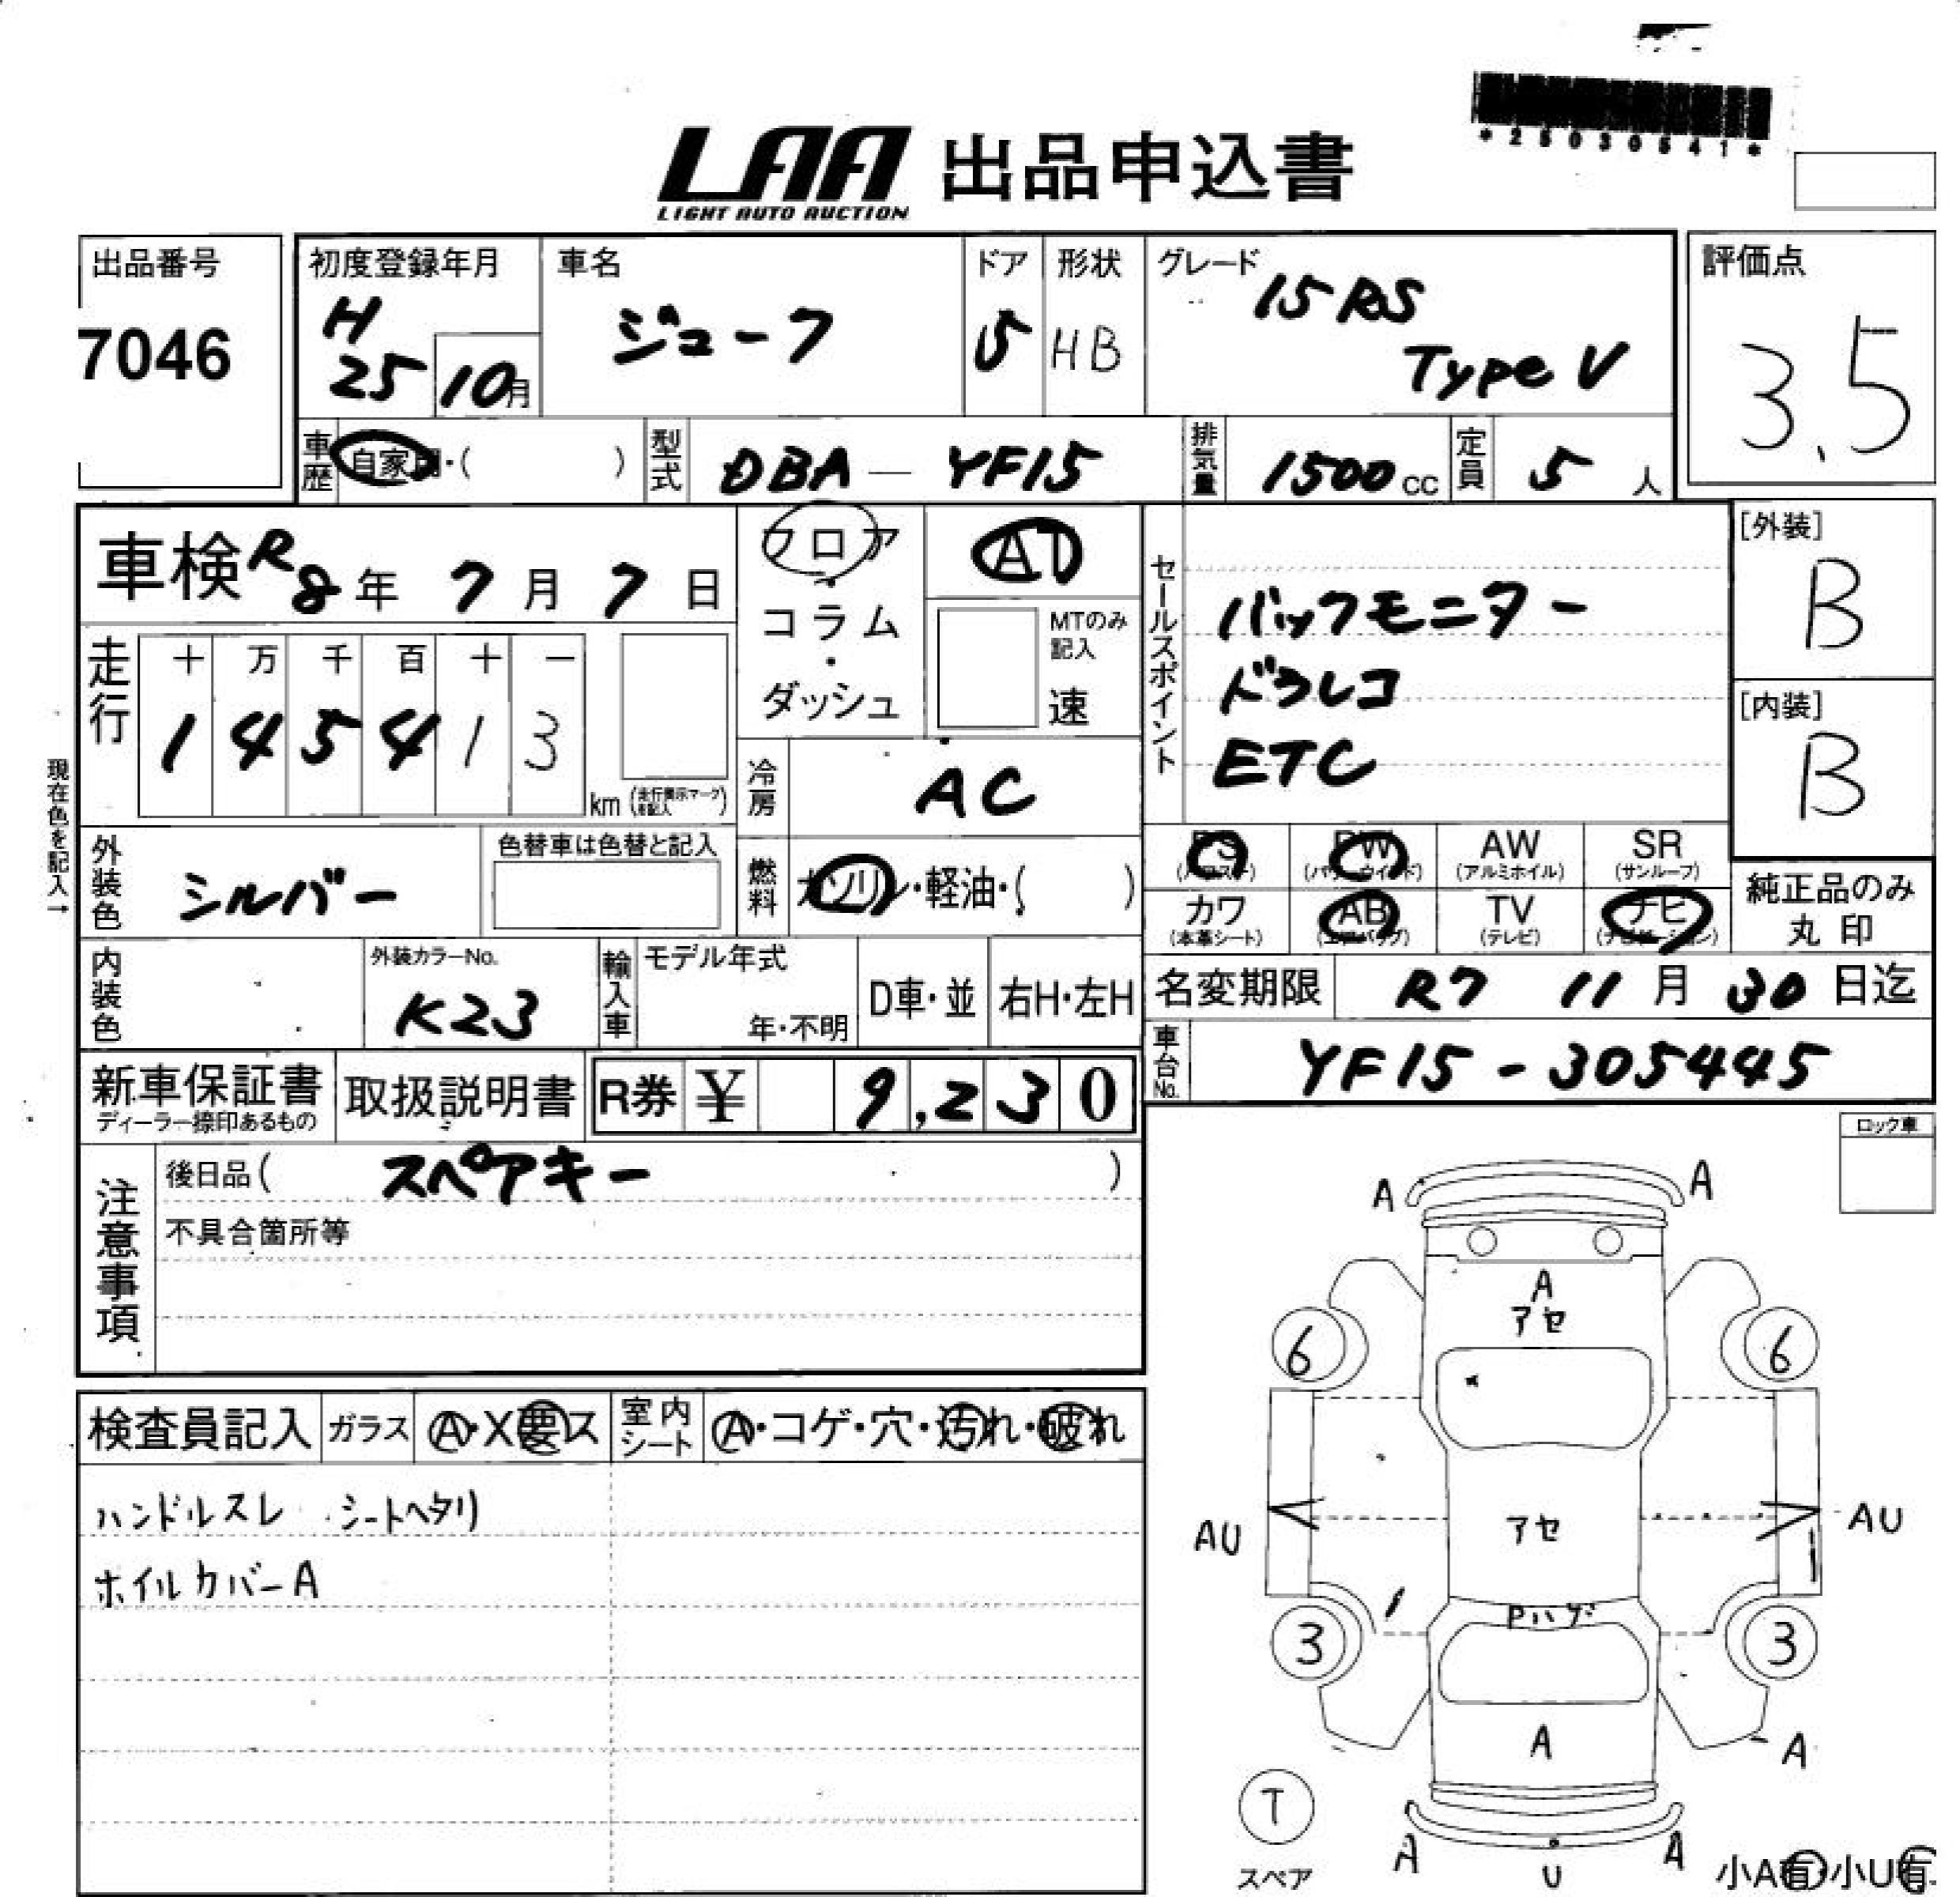 *25030541*
LAA 出品申込書
LIGHT AUTO AUCTION
出品番号
7046
初度登録年月
H
25 10月
車名
ジューク
ドア
5
形状
HB
グレード
15RS
Type V
評価点
3.5
車歴 自家用・( )
型式 DBA — YF15
排気量 1500cc
定員 5人
車検 R8年 7月 7日
フロア
・
コラム
・
ダッシュ
AT
MTのみ
記入
速
セールスポイント
バックモニター
ドラレコ
ETC
[外装]
B
[内装]
B
現在色を記入→
走行
十 万 千 百 十 一
1 4 5 4 1 3
km (走行表示マーク未記入)
冷房 AC
外装色 シルバー
色替車は色替と記入
燃料 ガソリン・軽油・( )
PS PW AW SR
(パワステ) (パワーウインド) (アルミホイル) (サンルーフ)
カワ AB TV ナビ
(本革シート) (エアバッグ) (テレビ) (ナビゲーション)
純正品のみ
丸印
内装色
外装カラーNo.
K23
輸入車
モデル年式
年・不明
D車・並
右H・左H
名変期限 R7 11月 30日迄
車台No. YF15-305445
新車保証書
ディーラー捺印あるもの
取扱説明書
R券 ¥ 9,230
注意事項
後日品( スペアキー )
不具合箇所等
ロック車
検査員記入
ガラス A・X要ス
室内シート A・コゲ・穴・汚れ・破れ
ハンドルスレ シートヘタリ
ホイルカバーA
A A
A
アセ
6 6
AU アセ AU
Pハゲ
3 3
A
A
T
スペア
A U A
小A有・小U有